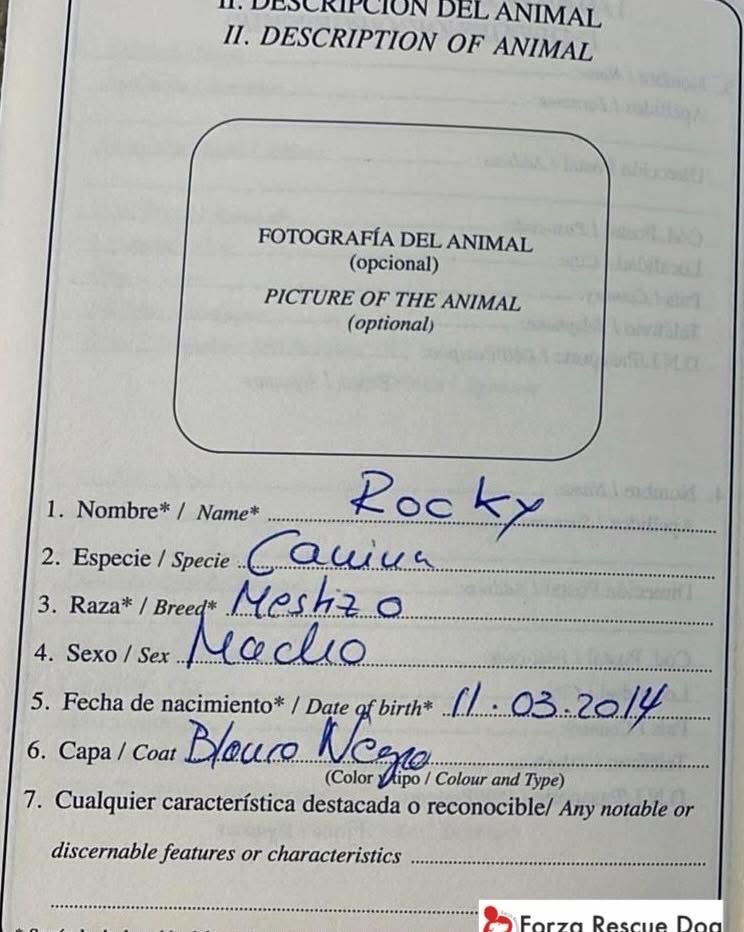 II. DESCRIPCIÓN DEL ANIMAL
II. DESCRIPTION OF ANIMAL
FOTOGRAFÍA DEL ANIMAL
(opcional)
PICTURE OF THE ANIMAL
(optional)
1. Nombre* / Name* Rocky
2. Especie / Specie Canina
3. Raza* / Breed* Mestizo
4. Sexo / Sex Macho
5. Fecha de nacimiento* / Date of birth* 11.03.2014
6. Capa / Coat Blanco Negro
(Color y tipo / Colour and Type)
7. Cualquier característica destacada o reconocible/ Any notable or
discernable features or characteristics
Forza Rescue Dog